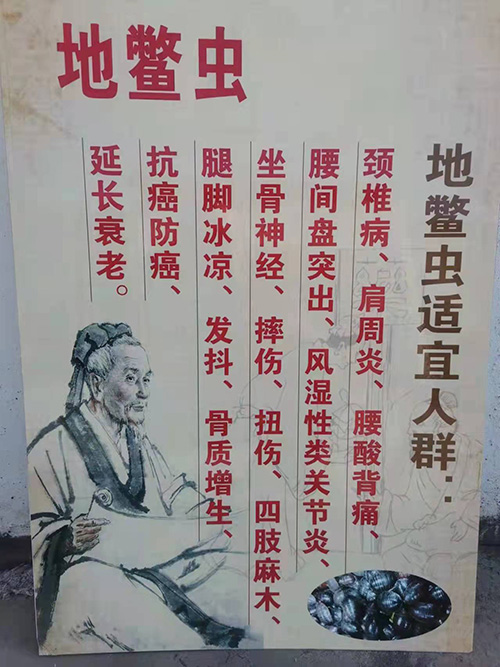 地鳖虫
地鳖虫适宜人群：
颈椎病、肩周炎、腰酸背痛、
腰间盘突出、风湿性类关节炎、
坐骨神经、摔伤、扭伤、四肢麻木、
腿脚冰凉、发抖、骨质增生、
抗癌防癌、
延长衰老。